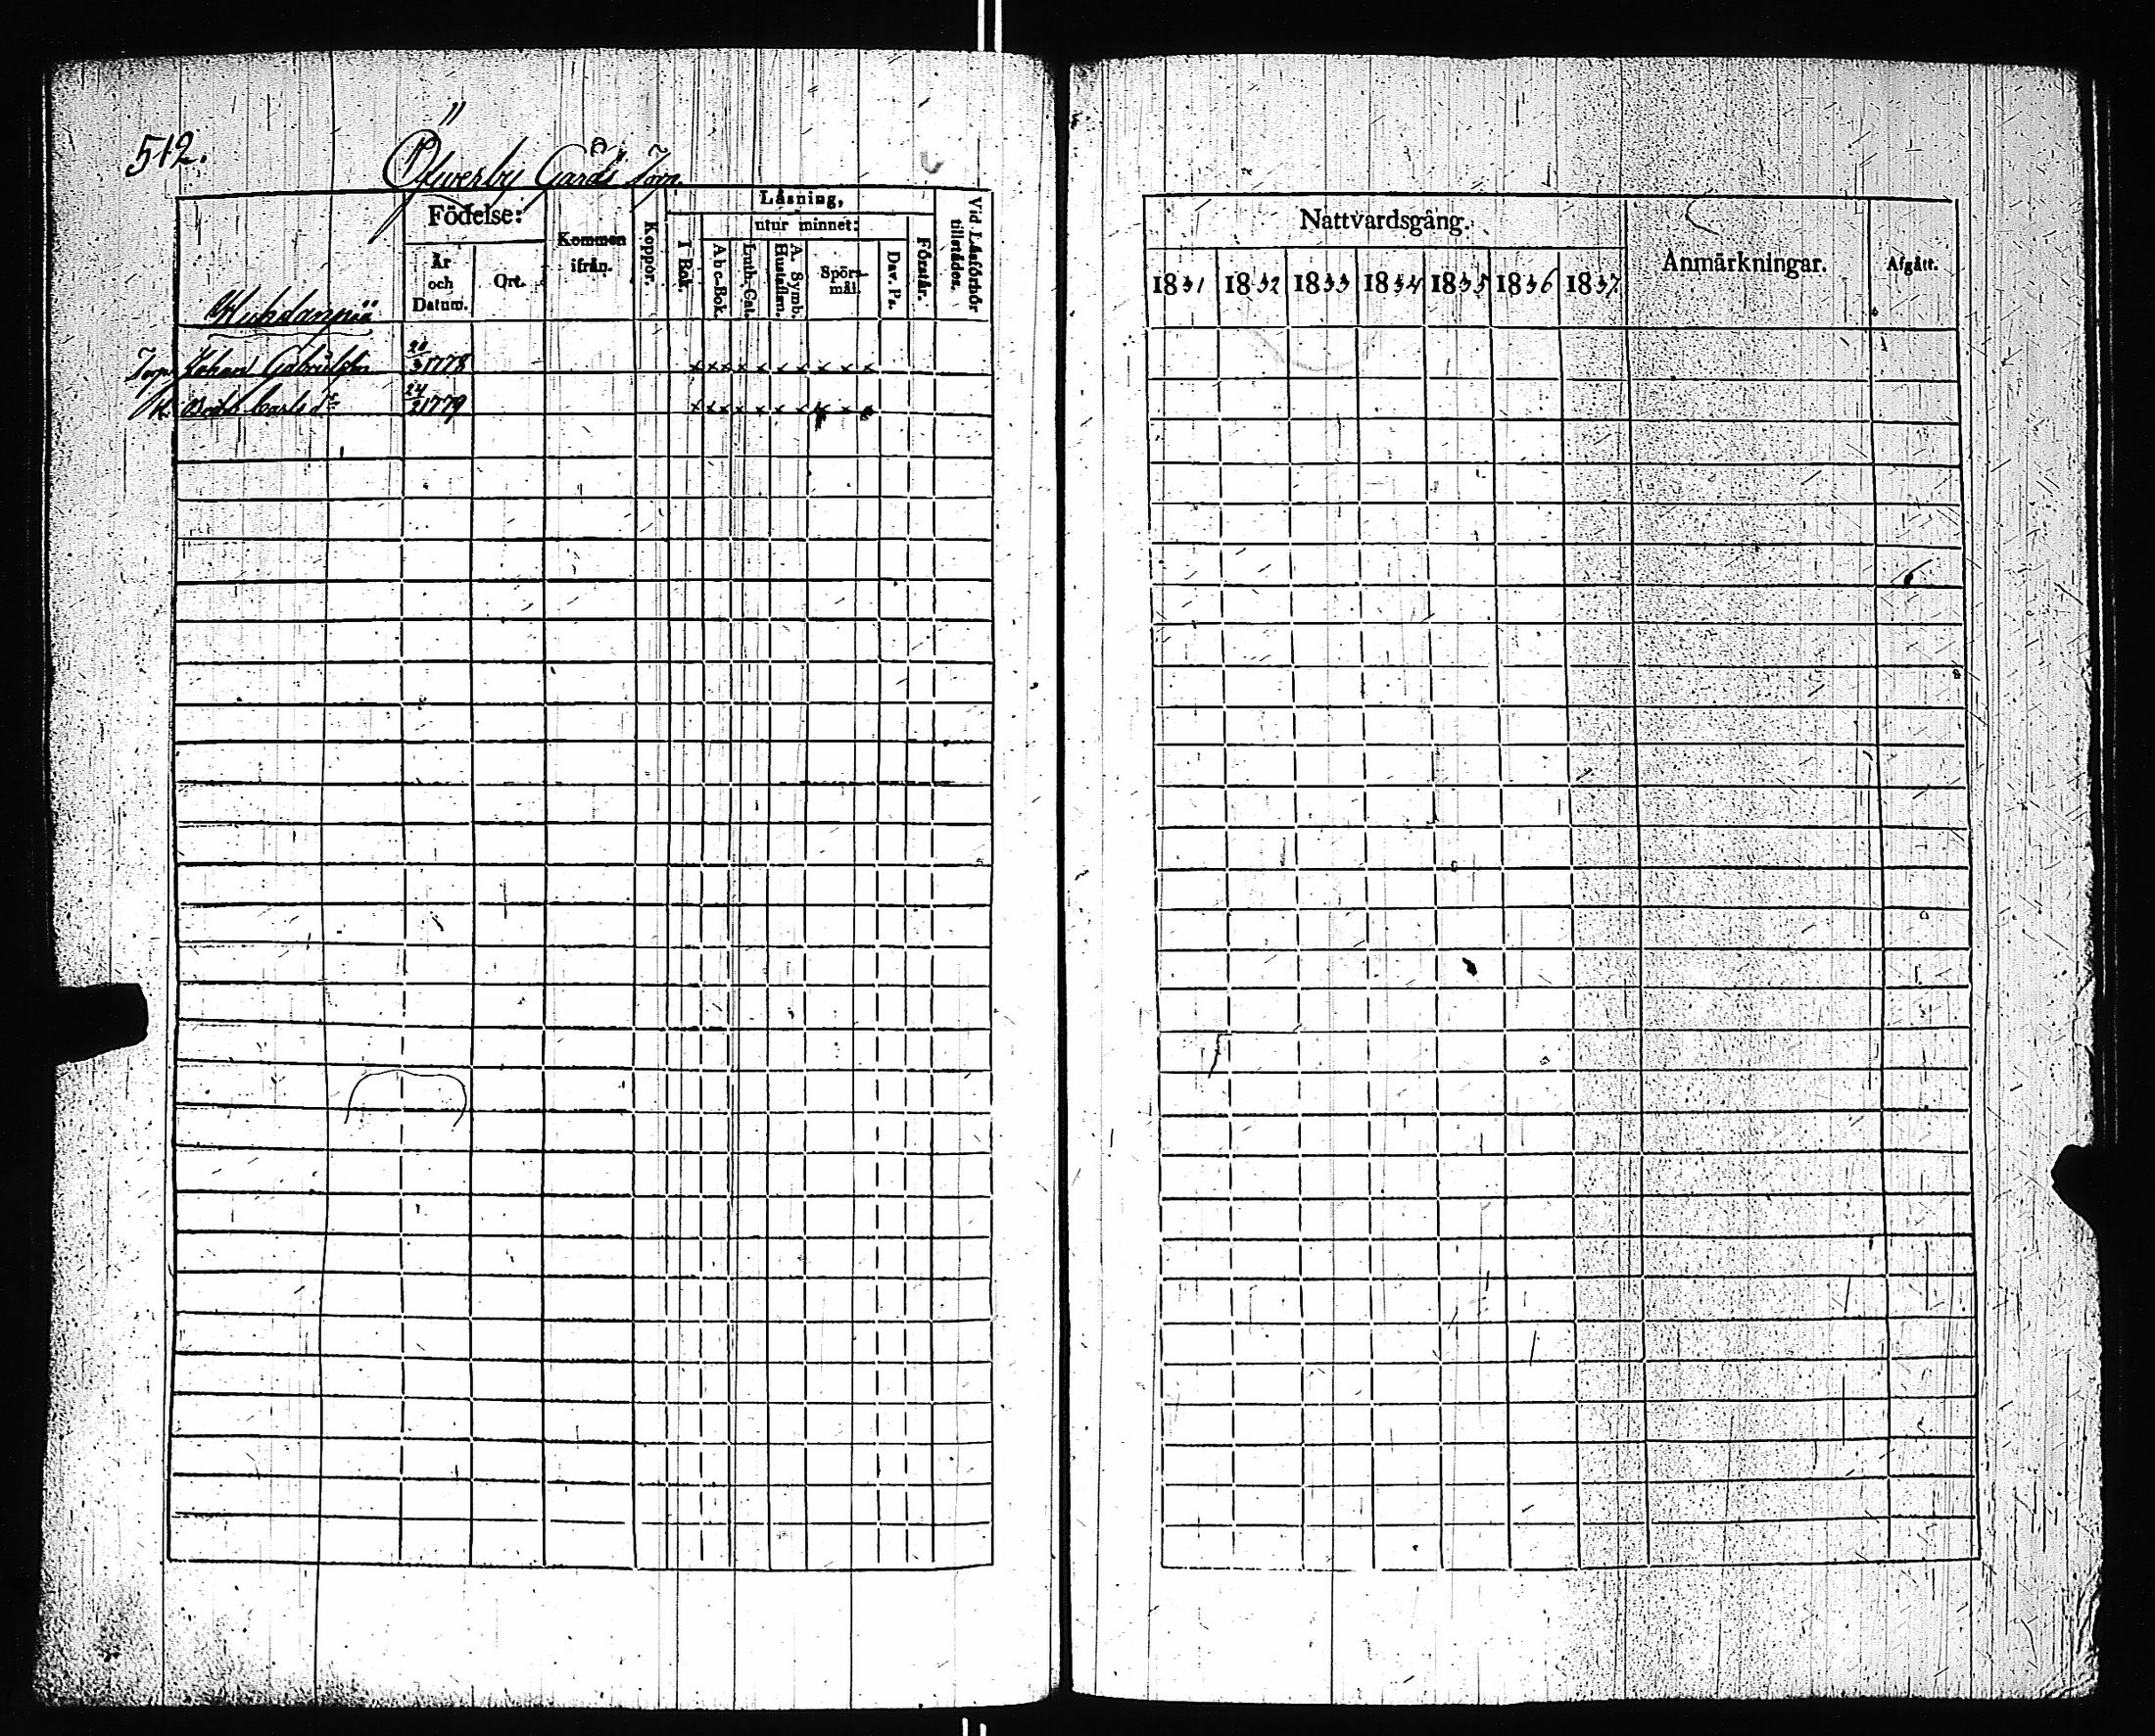 512.
Öfwerby Gårds Torp
Födelse:
År och Datum.
Ort.
Kommen ifrån.
Koppor.
Läsning,
I Bok.
utur minnet:
Abc-Bok.
Luth. Cat.
A. Symb. Hustaflan.
Spörsmål.
Dav. Ps.
Förstår.
Vid Läsförhör tillstädes.
Nattvardsgång.
1831 1832 1833 1834 1835 1836 1837
Anmärkningar.
Afgått.
Torp. Johan Gabrielsson 20/3 1778 x x x x x x x x x x
H. Carlsdr 24/2 1779 x x x x x x x x x x